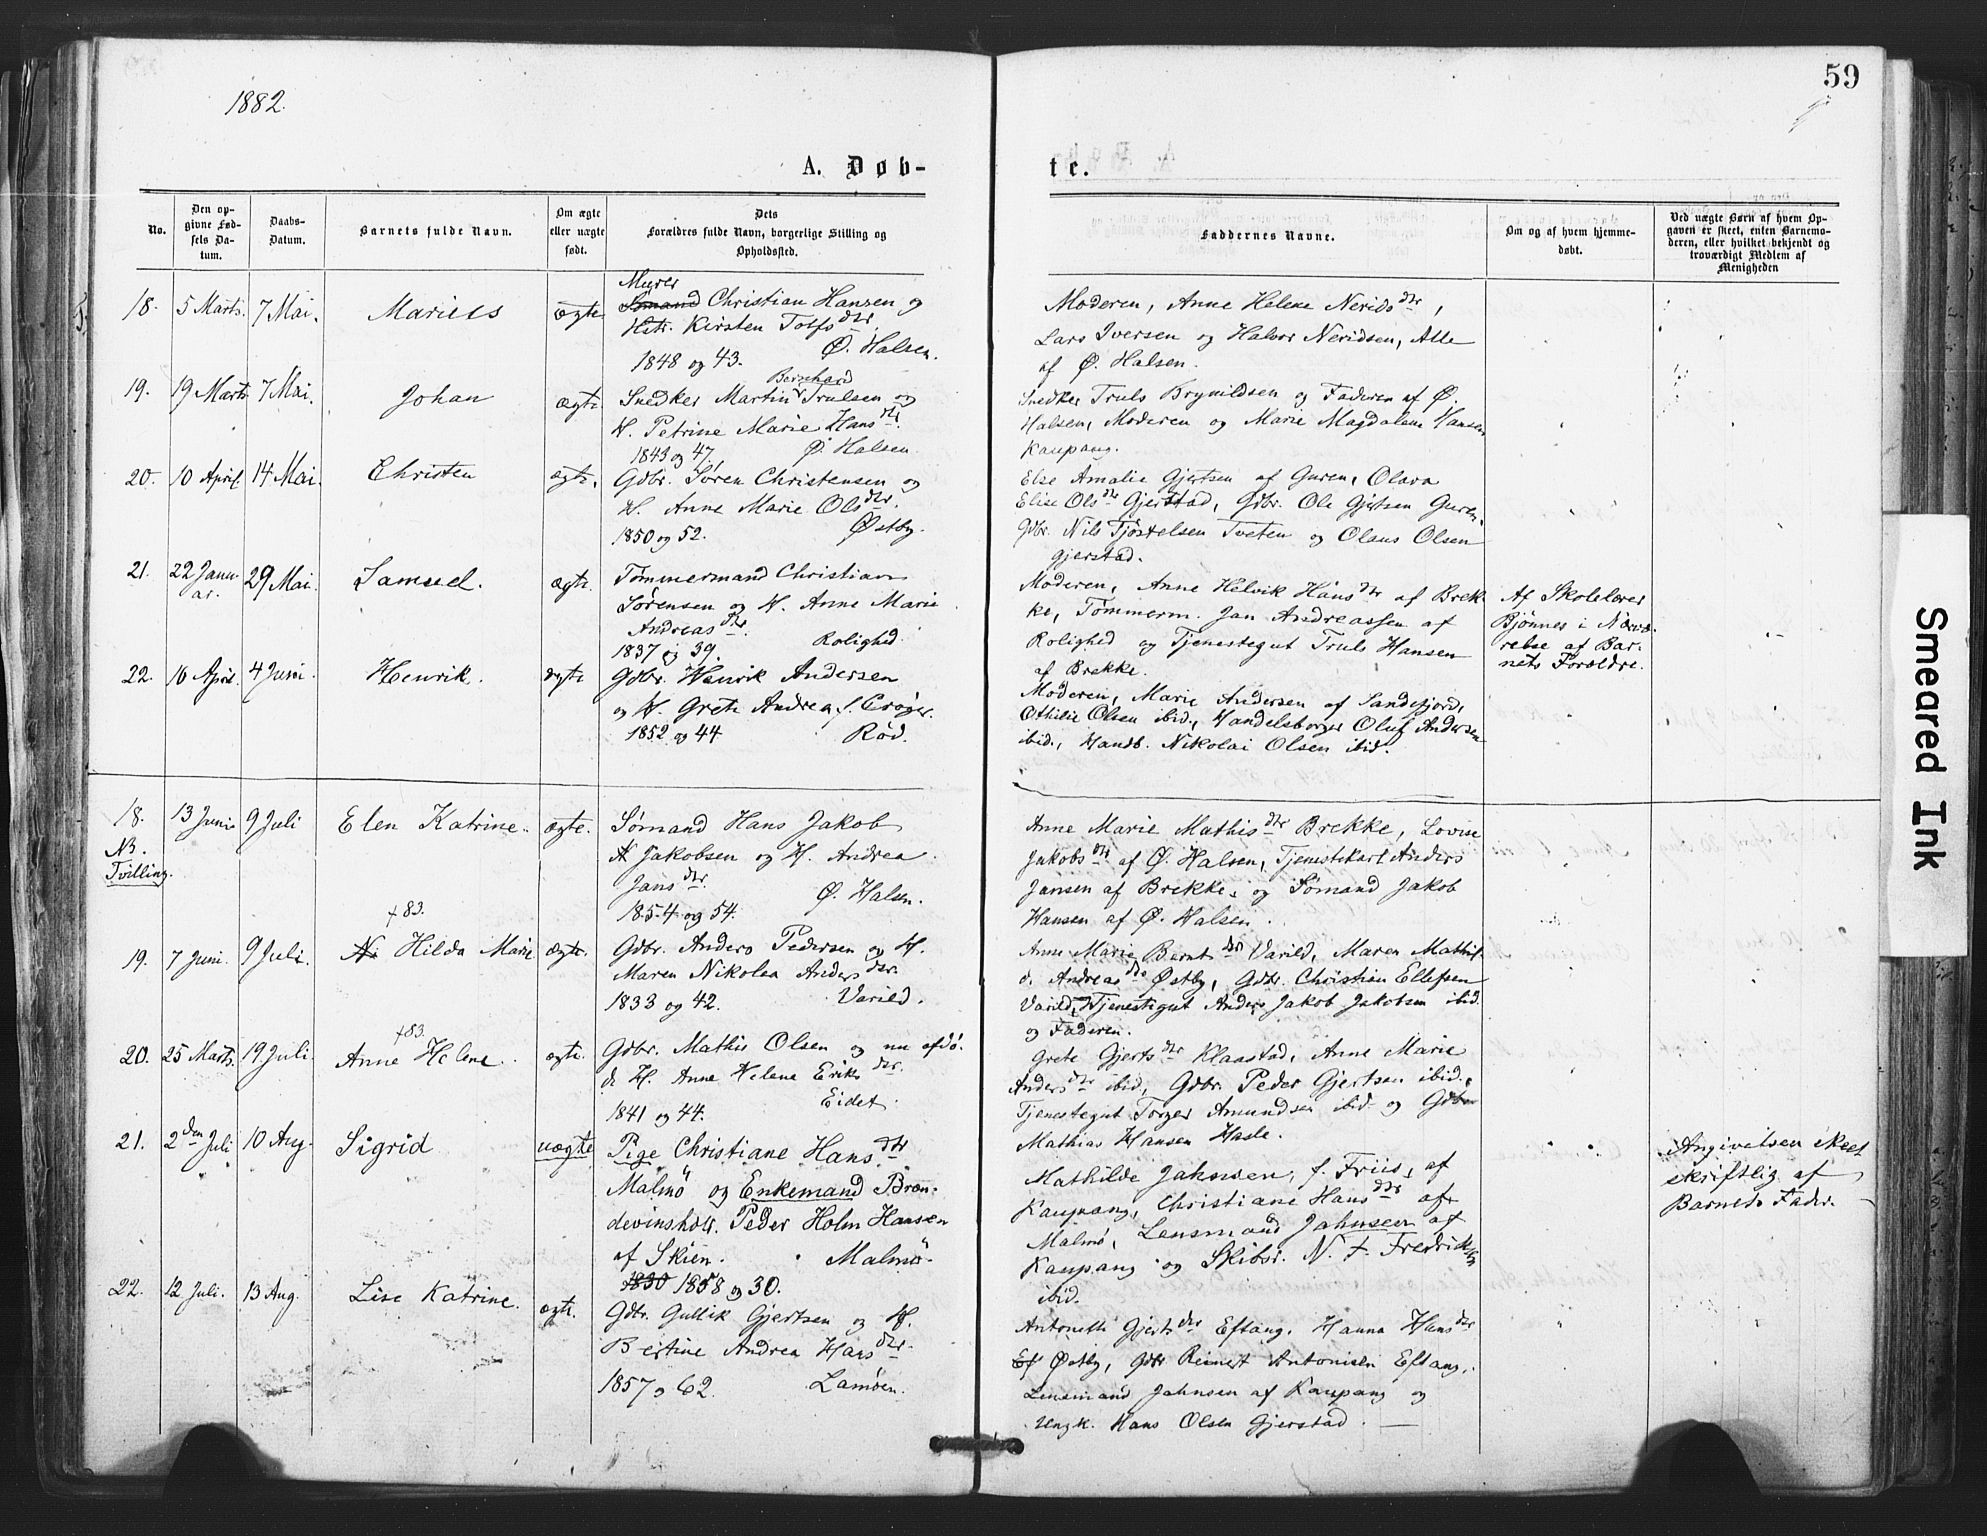 59
1882.
A. Døb-
te.
No.
Den op-
givne Fød-
sels Da-
tum.
Daabs-
Datum.
Barnets fulde Navn.
Om ægte
eller uægte
født.
Dets
Forældres fulde Navn, borgerlige Stilling og
Opholdssted.
Faddernes Navne.
Om og af hvem hjemme-
døbt.
Ved uægte Børn af hvem Op-
gaven er skeet, enten Barnemo-
deren, eller hvilket bekjendt og
troværdigt Medlem af
Menigheden
18. 5 Marts. 7 Mai. Marius ægte
Murer
Sømand Christian Hansen og
Hstr. Kirsten Tolfsdtr.
1848 og 43. Ø. Halsen.
Moderen, Anne Helene Neridsdtr,
Lars Iversen og Halvor Neridsen, Alle
af Ø. Halsen.
19. 19 Marts 7 Mai. Johan ægte
Bernhard
Snedker Martin Trulsen og
H. Petrine Marie Hansdtr.
1843 og 47. Ø. Halsen.
Snedker Truls Brynildsen og Faderen af Ø.
Halsen, Moderen og Marie Magdalene Hansen
Kaupang.
20. 10 April 14 Mai. Christen ægte.
Gdbr. Søren Christensen og
H. Anne Marie Olsdtr.
1850 og 52. Østby.
Else Amalie Gjertsen af Guren, Olava
Elise Olsdtr Gjerstad, Gdbr. Ole Gjertsen Guren.
Gdbr. Nils Tjøstelsen Tveten og Olaus Olsen
Gjerstad.
21. 22 Janu-
ar. 29 Mai. Samuel. ægte.
Tømmermand Christian
Sørensen og H. Anne Marie
Andreasdtr.
1837 og 39. Rolighed.
Moderen, Anne Helvik Hansdtr af Brek-
ke, Tømmerm. Jan Andreassen af
Rolighed og Tjenestegut Truls Hansen
af Brekke.
Af Skolelærer
Bjønnes i Nærvæ-
relse af Bar-
nets Forældre.
22. 16 April. 4 Juni. Henrik. ægte
Gdbr. Henrik Andersen
og H. Grete Andrea, f. Crøger.
1852 og 44 Rød.
Moderen, Marie Andersen af Sandefjord,
Othilie Olsen ibid., Handelsborger Oluf Andersen
ibid., Handb. Nikolai Olsen ibid.
18. 13 Juni 9 Juli Elen Katrine. ægte.
NB.
Tvilling.
Sømand Hans Jakob
Jakobsen og H. Andrea
Jansdtr.
1854 og 54. Ø. Halsen.
Anne Marie Mathisdtr Brekke, Lovise
Jakobsdtr af Ø. Halsen, Tjenestekarl Anders
Jansen af Brekke, og Sømand Jakob
Hansen af Ø. Halsen.
+83.
19. 7 Juni. 9 Juli. Hilda Marie ægte.
Gdbr. Anders Pedersen og H.
Maren Nikolea Andersdtr.
1833 og 42. Varild.
Anne Marie Berntsdtr Varild, Maren Mathil-
d. Andreasdtr Østby, Gdbr. Christian Ellefsen
Varild, Tjenestegut Anders Jakob Jakobsen ibid.
og Faderen.
+83.
20. 25 Marts. 19 Juli. Anne Helene. ægte.
Gdbr. Mathis Olsen og nu afdø-
de H. Anne Helene Eriksdtr.
1841 og 44. Eidet.
Grete Gjertsdtr Klaastad, Anne Marie
Andersdtr ibid, Gdbr. Peder Gjertsen ibid.,
Tjenestegut Torger Amundsen ibid og Gdbr
Mathias Hansen Hasle.
21. 2den Juli 10 Aug. Sigrid uægte
Pige Christiane Hansdtr
Malmö og Enkemand Bræn-
devinshdlr. Peder Holm Hansen
af Skien. Malmö.
1830 1858 og 30.
Mathilde Jahnsen, f. Friis, af
Kaupang, Christiane Hansdtr af
Malmö, Lensmand Jahnsen af
Kaupang og Skibsr. N. F. Fredriksen
ibid.
Angivelsen skeet
skriftlig af
Barnets Fader.
22. 12 Juli. 13 Aug. Lise Katrine. ægte.
Gdbr. Gullik Gjertsen og H.
Bertine Andrea Hansdtr.
1857 og 62. Lamøen.
Antonette Gjertsdtr Eftang, Hanna Hansdtr
Østby, Gdbr Reinert Antonisen Eftang,
Lensmand Jahnsen af Kaupang og
Ungk. Hans Olsen Gjerstad.
Smeared Ink